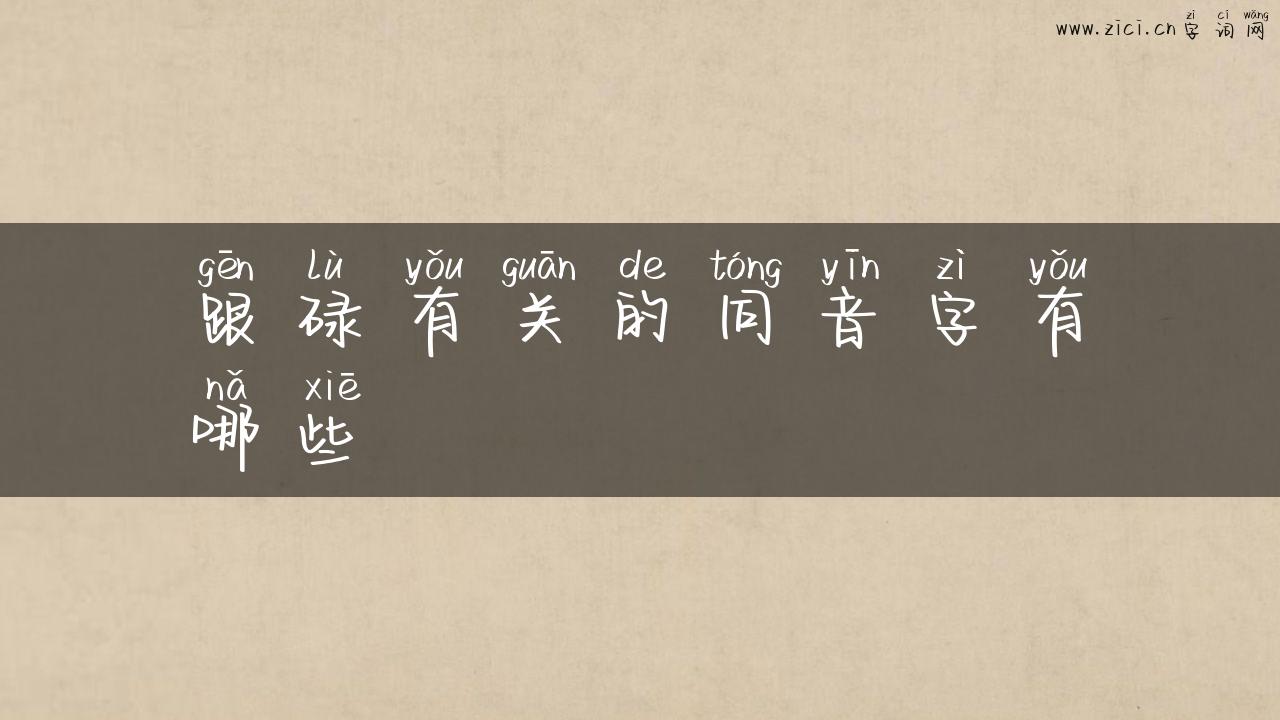 zì cí wǎng
www.zici.cn 字词网
gēn lù yǒu guān de tóng yīn zì yǒu
跟碌有关的同音字有
nǎ xiē
哪些